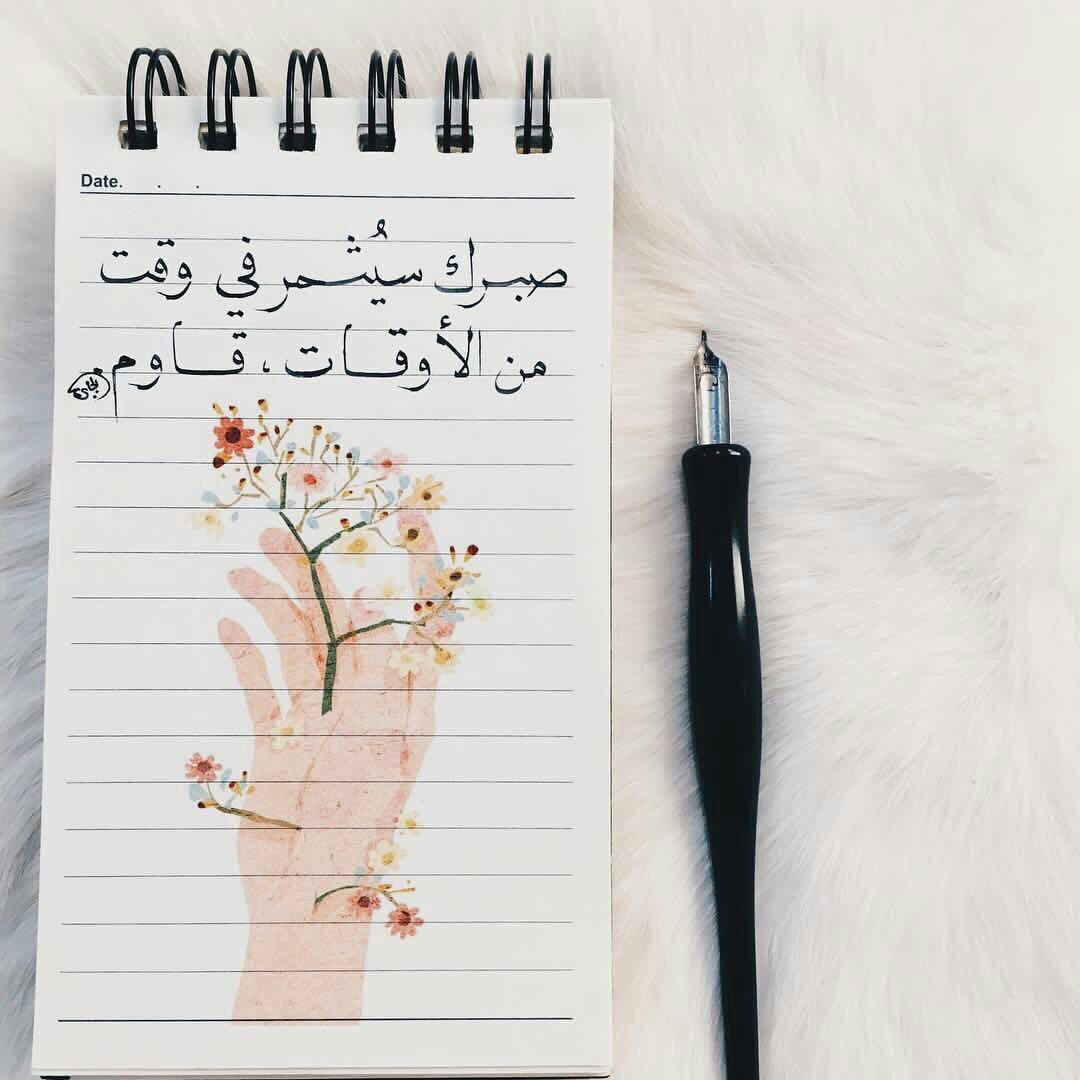 Date. . .
صبرك سيُثمر في وقت
من الأوقات ، قاوم.